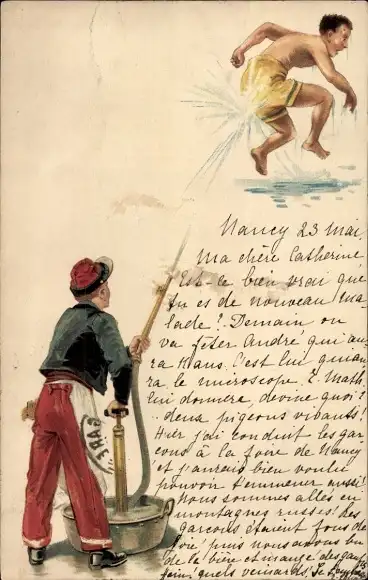 Nancy 23 mai
Ma chère Catherine
Est-ce bien vrai que
tu es de nouveau ma
lade? Demain on
va fêter André qui au
ra ans. C'est lui qui au
ra le microscope. E. Math.
lui donnera, devine quoi?
deux pigeons vivants!
Hier j'ai conduit les gar
cons à la foire de Nancy
et j'aurais bien voulu
pouvoir t'emmener aussi!
Nous sommes allés en
montagnes russes! Les
garçons étaient fous de
joie, puis nous avons bu
de la bière et mangé des gau
quels veinards!